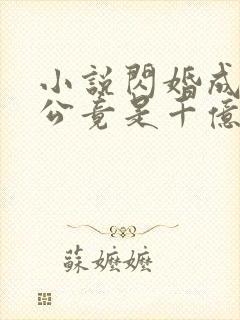 小說閃婚成
公竟是千億
蘇嬤嬤